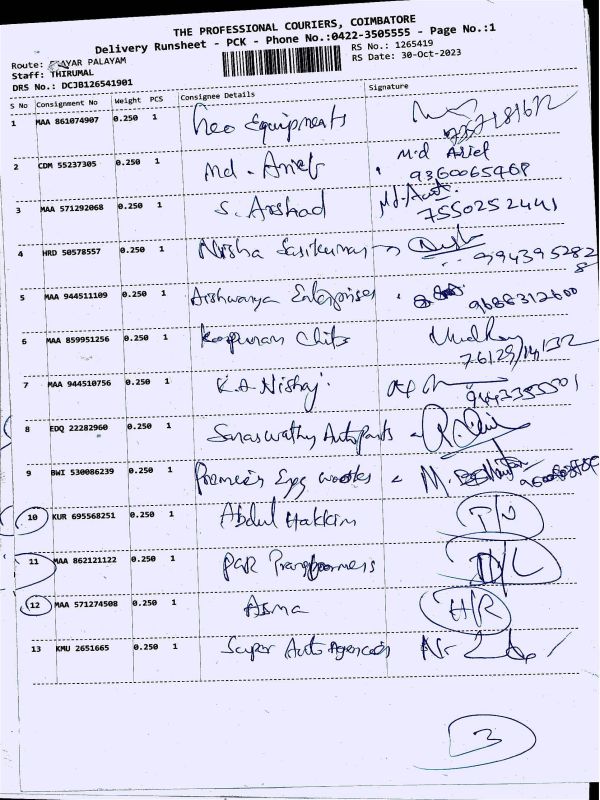 THE PROFESSIONAL COURIERS, COIMBATORE
Delivery Runsheet - PCK - Phone No.:0422-3505555 - Page No.:1
Route: AYAR PALAYAM
RS No.: 1265419
Staff: THIRUMAL
RS Date: 30-Oct-2023
DRS No.: DCJB126541901
S No Consignment No Weight PCS Consignee Details Signature
1 MAA 861074907 0.250 1 Geo Equipments
2 CDM 55237305 0.250 1 Md. Arief Md Ariel
9360065468
3 MAA 571292068 0.250 1 S. Arshad
7550252441
4 HRD 50578557 0.250 1 Nisha Sasikumar
9943952828
5 MAA 944511109 0.250 1 Aishwarya Enterprises 9688312600
6 MAA 859951256 0.250 1 Chits
7 MAA 944510756 1 K.A. Nishaj
9443355501
8 EDQ 22282960 0.250 1 Saraswathy Autoparts
9 BWI 530086239 0.250 1 Premier Egg works M.
10 KUR 695568251 0.250 1 Abdul Hakkim
11 MAA 862121122 0.250 1 PGR Transformers D/L
12 MAA 571274508 0.250 1 Asma H/R
13 KMU 2651665 0.250 1 Super Auto Agencies
3